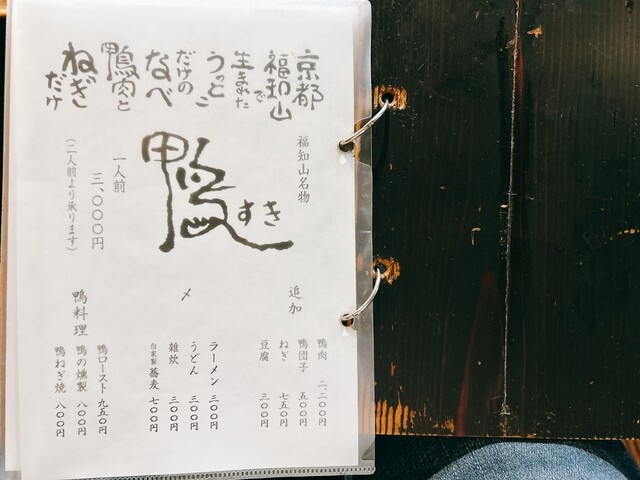 京都
福知山で
生まれた
うっとこ
だけの
なべ
鴨肉と
ねぎ
だけ
福知山名物
鴨すき
一人前
三、〇〇〇円
(二人前より承ります)
追加
鴨肉 二、二〇〇円
鴨団子 五〇〇円
ねぎ 七五〇円
豆腐 三〇〇円
〆
ラーメン 三〇〇円
うどん 三〇〇円
雑炊 三〇〇円
自家製蕎麦 七〇〇円
鴨料理
鴨ロースト 九五〇円
鴨の燻製 八〇〇円
鴨ねぎ焼 八〇〇円